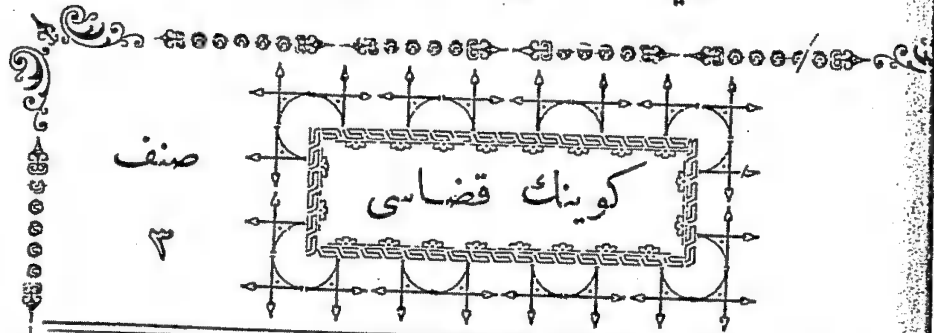 صنف
٣
كوينك قضاسى